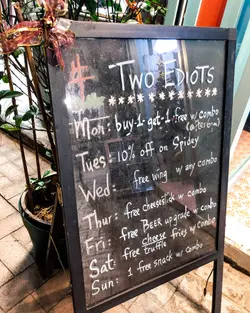 TWO EDIOTS
**************
Mon: buy-1-get-1 free w/ combo
(after 8PM)
Tues: 10% off on Spidey
Wed: free wing w/ any combo
Thur: free cheeseslide w/ combo
Fri: free BEER upgrade w/ combo
cheese
Sat: free truffle fries w/ combo
Sun: 1 free snack w/ combo